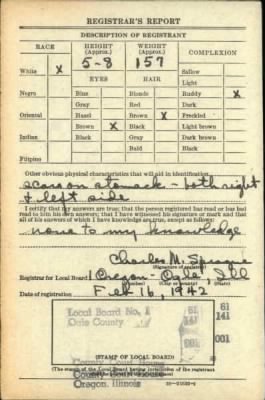 REGISTRAR'S REPORT
DESCRIPTION OF REGISTRANT
RACE HEIGHT (Approx.) WEIGHT (Approx.) COMPLEXION
5-8 157
White X Sallow
EYES HAIR Light
Negro Blue Blonde Ruddy X
Gray Red Dark
Oriental Hazel Brown X Freckled
Brown X Black Light brown
Indian Black Gray Dark brown
Bald Black
Filipino
Other obvious physical characteristics that will aid in identification
scars on stomack - both right
& left side
I certify that my answers are true; that the person registered has read or has had
read to him his own answers; that I have witnessed his signature or mark and that
all of his answers of which I have knowledge are true, except as follows:
none to my knowledge
Charles M.
(Signature of registrar)
Registrar for Local Board 1 Oregon - Ogle, Ill
Date of registration Feb 16, 1942
Local Board No. 1 61
Ogle County 141
001
61
141
001
(STAMP OF LOCAL BOARD)
(The stamp of the Local Board having jurisdiction of the registrant
County Court House
Oregon, Illinois